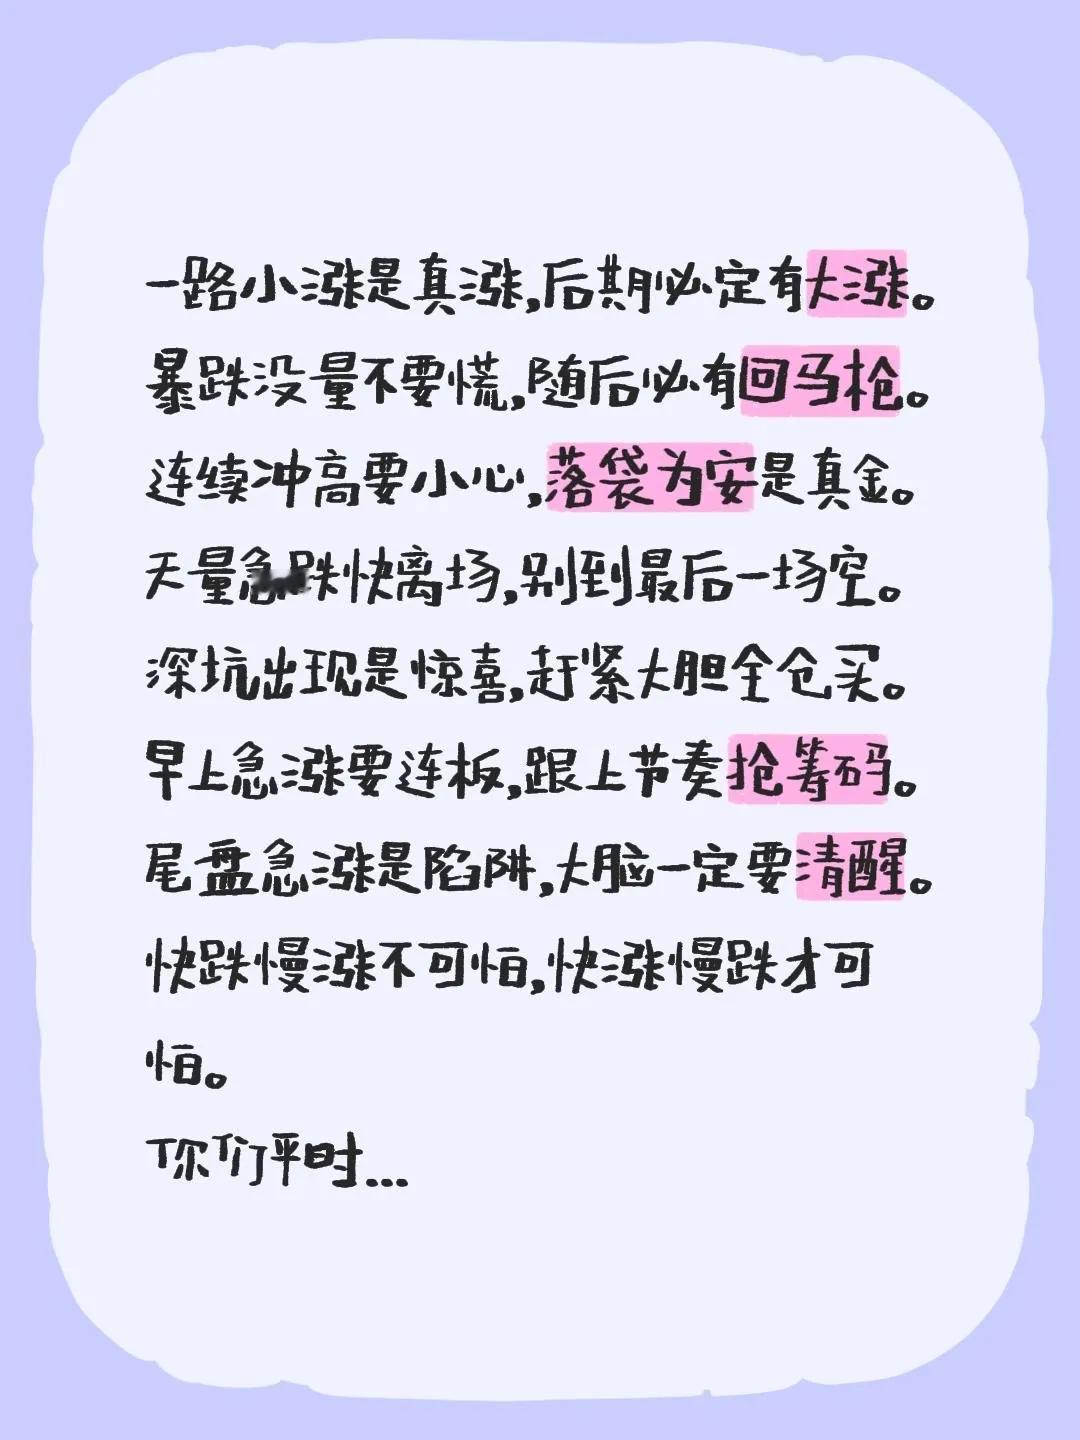 一路小涨是真涨,后期必定有大涨。
暴跌没量不要慌,随后必有回马枪。
连续冲高要小心,落袋为安是真金。
天量急跌快离场,别到最后一场空。
深坑出现是惊喜,赶紧大胆全仓买。
早上急涨要连板,跟上节奏抢筹码。
尾盘急涨是陷阱,大脑一定要清醒。
快跌慢涨不可怕,快涨慢跌才可
怕。
你们平时...